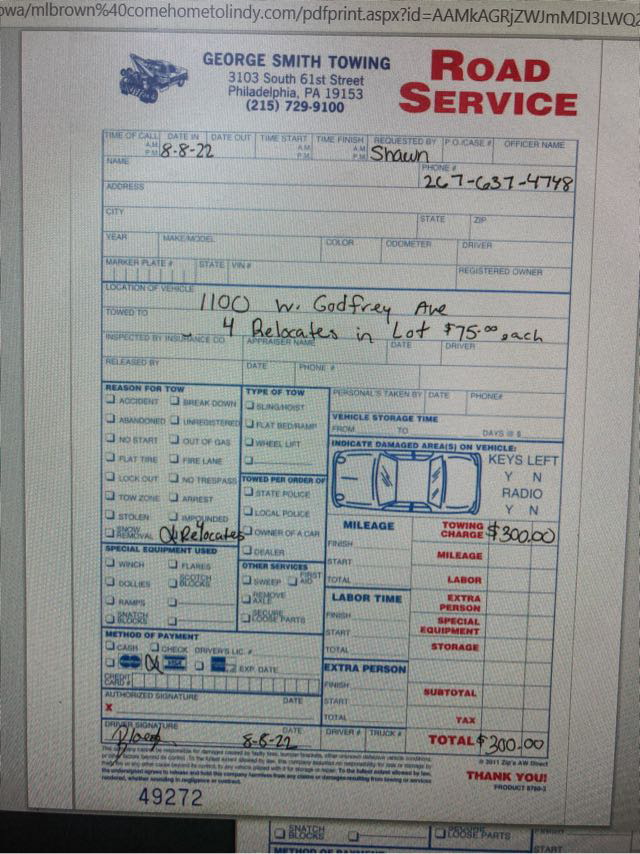 owa/mlbrown%40comehometolindy.com/pdfprint.aspx?id=AAMkAGRjZWJmMDI3LWQ2
GEORGE SMITH TOWING
3103 South 61st Street
Philadelphia, PA 19153
(215) 729-9100
ROAD SERVICE
TIME OF CALL A.M. P.M. DATE IN 8-8-22 DATE OUT TIME START A.M. P.M. TIME FINISH A.M. P.M. REQUESTED BY Shawn P.O./CASE # OFFICER NAME
NAME PHONE # 267-637-4748
ADDRESS
CITY STATE ZIP
YEAR MAKE/MODEL COLOR ODOMETER DRIVER
MARKER PLATE # STATE VIN # REGISTERED OWNER
LOCATION OF VEHICLE 1100 W. Godfrey Ave
TOWED TO 4 Relocates in Lot $75.00 each
INSPECTED BY INSURANCE CO. APPRAISER NAME DATE DRIVER
RELEASED BY DATE PHONE #
REASON FOR TOW
ACCIDENT BREAK DOWN
ABANDONED UNREGISTERED
NO START OUT OF GAS
FLAT TIRE FIRE LANE
LOCK OUT NO TRESPASS
TOW ZONE ARREST
STOLEN IMPOUNDED
SNOW REMOVAL Relocates
TYPE OF TOW
SLING/HOIST
FLAT BED/RAMP
WHEEL LIFT
TOWED PER ORDER OF
STATE POLICE
LOCAL POLICE
OWNER OF A CAR
DEALER
PERSONAL'S TAKEN BY DATE PHONE#
VEHICLE STORAGE TIME
FROM TO DAYS @ $
INDICATE DAMAGED AREA(S) ON VEHICLE:
KEYS LEFT
Y N
RADIO
Y N
SPECIAL EQUIPMENT USED
WINCH FLARES
DOLLIES SCOTCH BLOCKS
RAMPS
SNATCH BLOCKS
OTHER SERVICES
SWEEP FIRST AID
REMOVE AXLE
SECURE LOOSE PARTS
MILEAGE
FINISH
START
TOTAL
LABOR TIME
FINISH
START
TOTAL
EXTRA PERSON
FINISH
START
TOTAL
TOWING CHARGE $300.00
MILEAGE
LABOR
EXTRA PERSON
SPECIAL EQUIPMENT
STORAGE
SUBTOTAL
TAX
TOTAL $300.00
METHOD OF PAYMENT
CASH CHECK DRIVER'S LIC. #
VISA EXP. DATE
CREDIT CARD #
AUTHORIZED SIGNATURE DATE
X
DRIVER SIGNATURE DATE 8-8-22 DRIVER # TRUCK #
© 2011 Zip's AW Direct
THANK YOU!
PRODUCT 8760-3
49272
SNATCH BLOCKS LOOSE PARTS
METHOD OF PAYMENT START